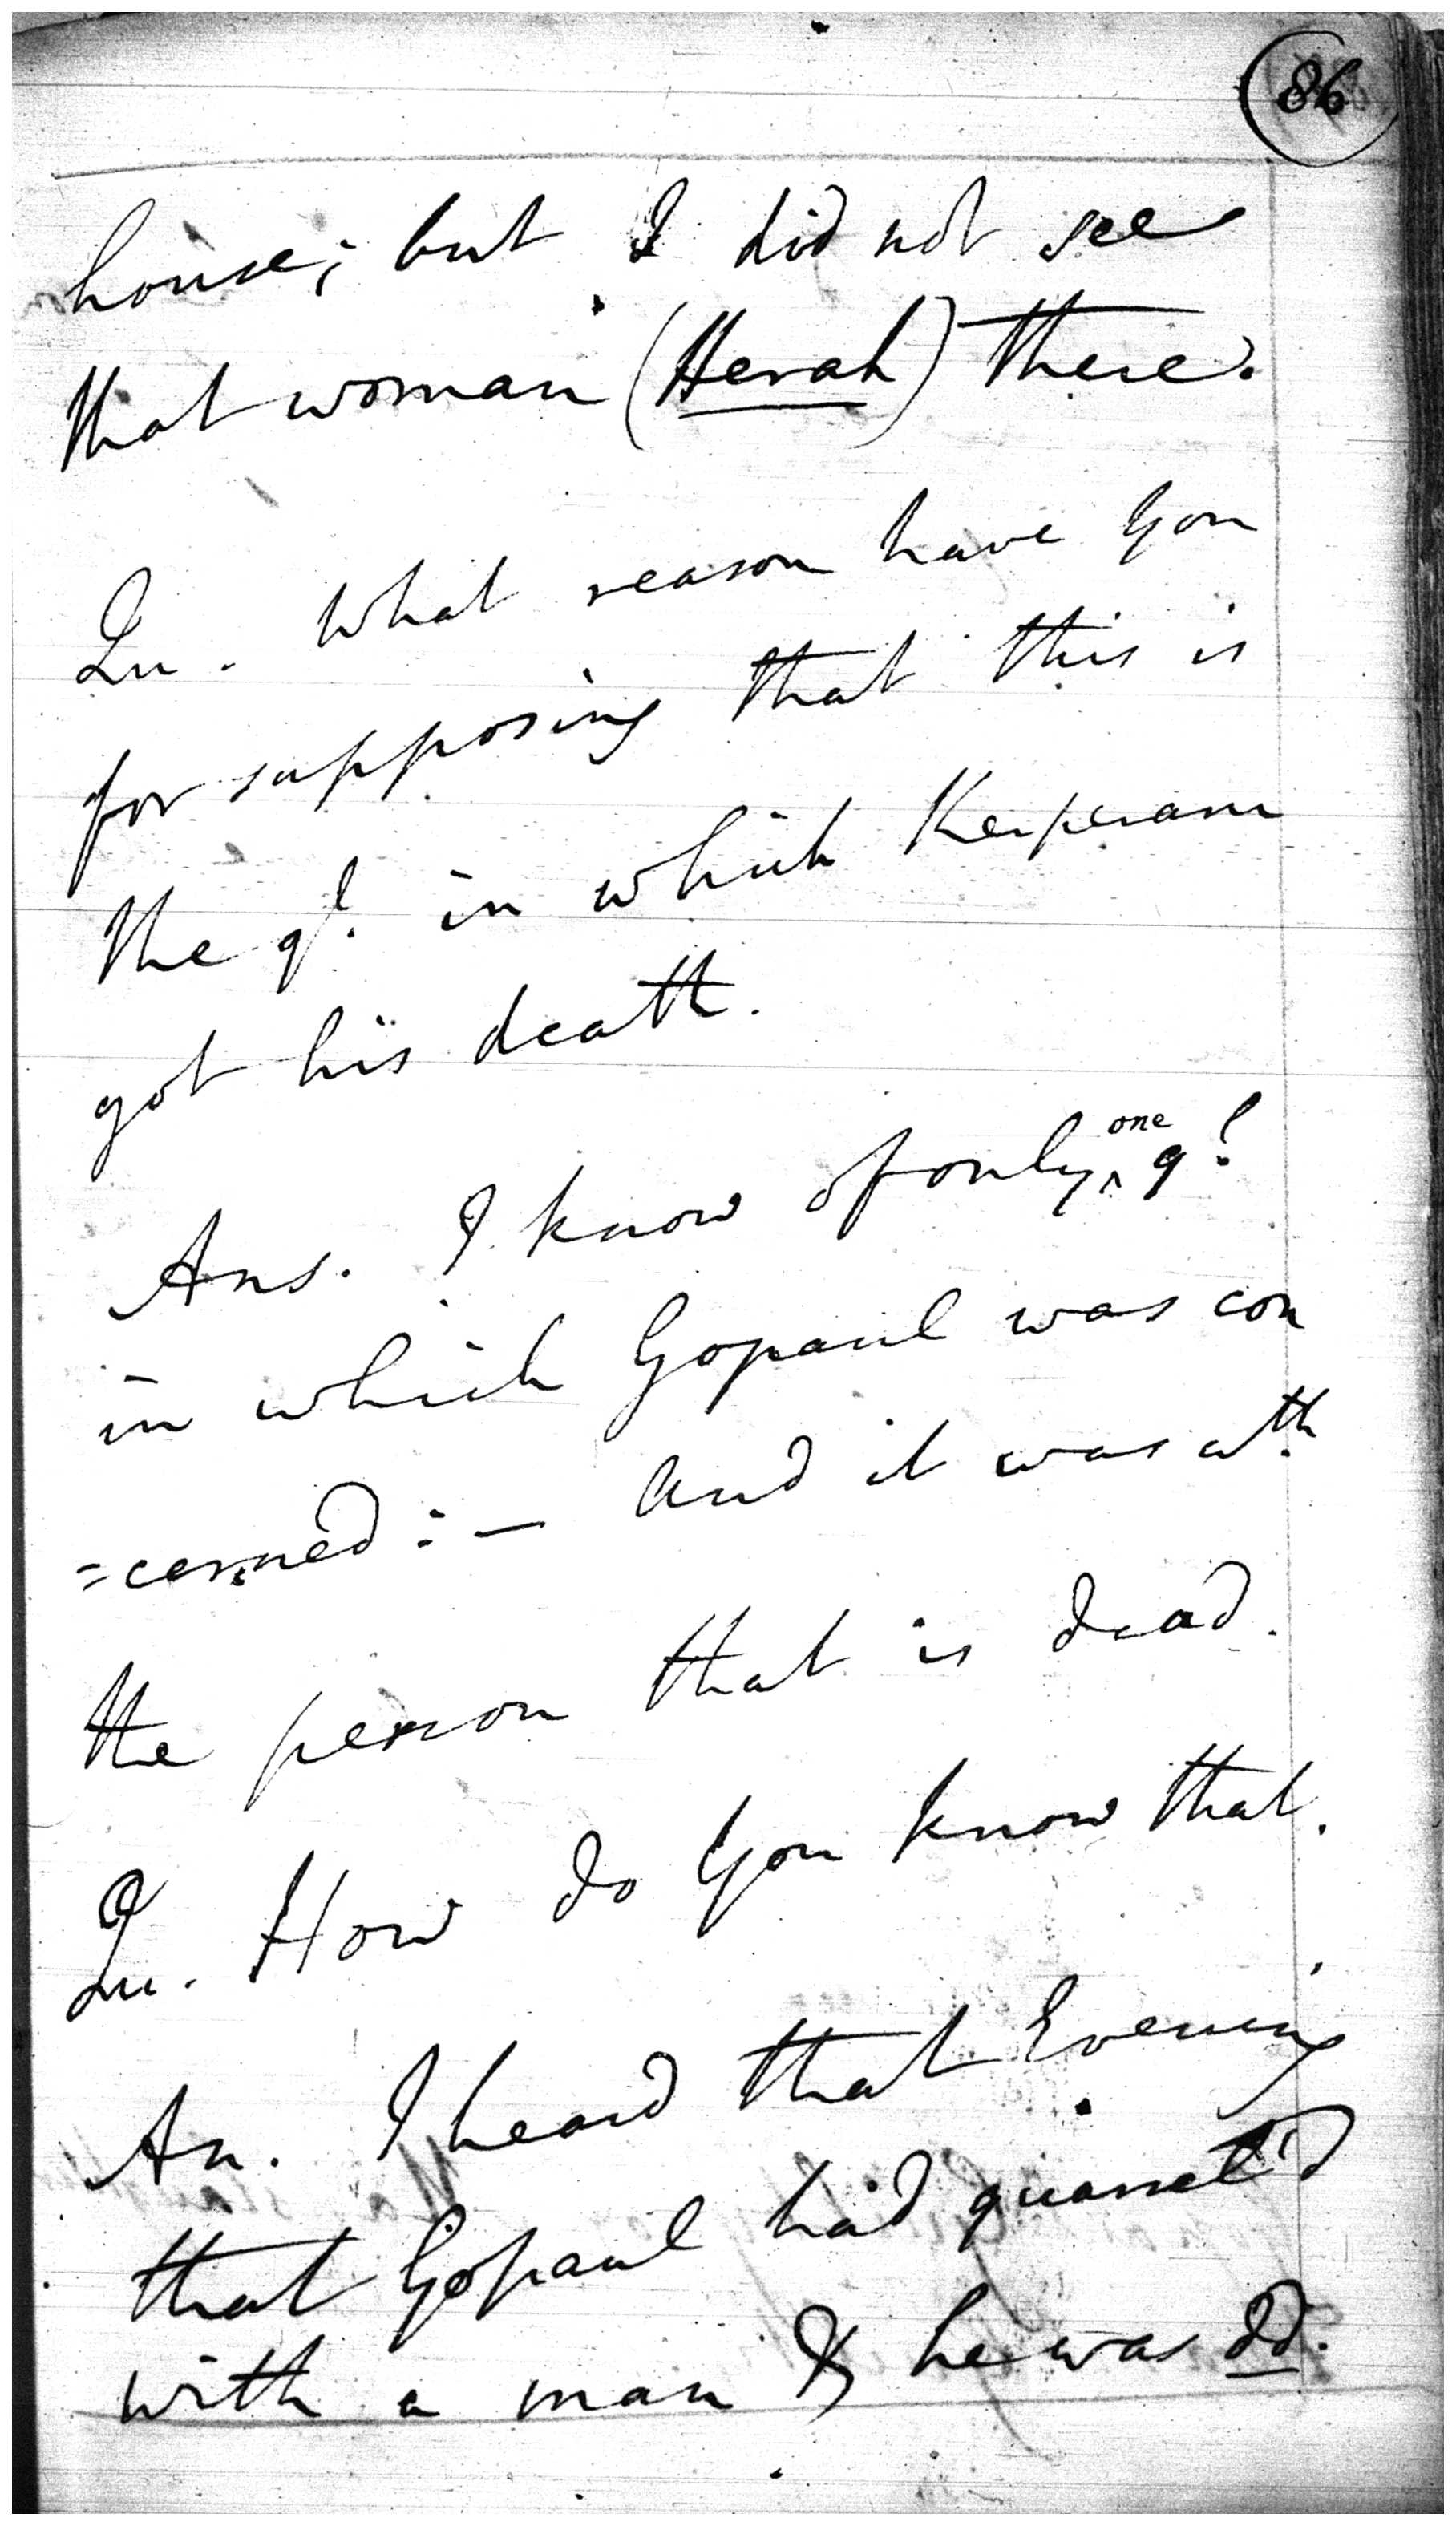 86
house; but I did not see
that woman (Herah) there.
Qu. What reason have you
for supposing that this is
the ql. in which Kerperam
got his death.
Ans. I know of only one ql.
in which Gopaul was con
=cerned :— and it was wth
the person that is dead.
Qu. How do you know that.
An. I heard that Evening
that Gopaul had quarrel'd
with a man & he was dd.